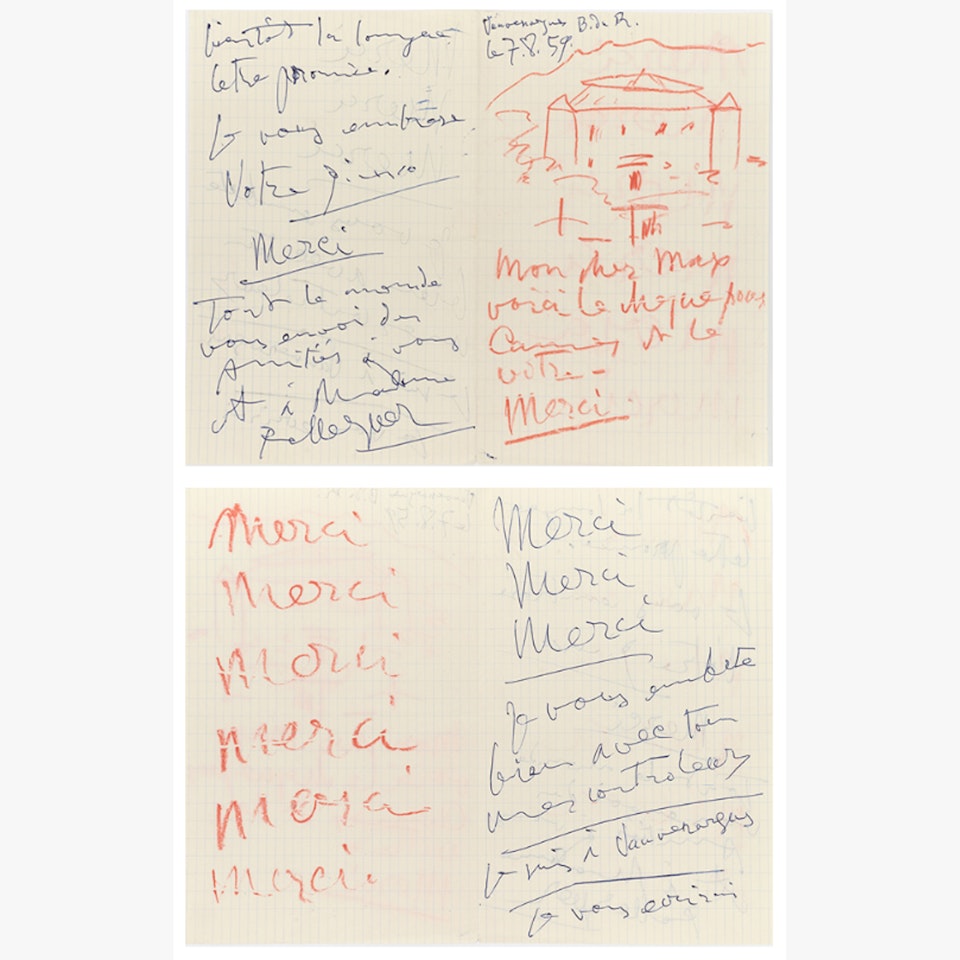 bientôt la longue
letre promise.
Je vous embrasse
Votre Picasso
Merci
Tout le monde
vous envoi des
Amitiés à vous
et à Madame
Pellequer
Vauvenargues B. du R.
le 7.8.59.
Mon cher Max
voici le cheque pour
Cannes et le
votre -
Merci
Merci
Merci
Merci
merci
Merci
Merci.
Merci
Merci
Merci
Je vous embete
bien avec tous
mes controleurs
Je suis à Vauvenargues
Je vous ecrirai